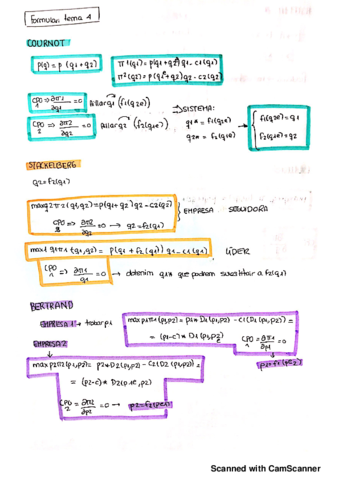 Formulari tema 1
COURNOT
p(q) = p (q1+q2)
π1(q1) = p(q1+q2)q1 - c1(q1)
π2(q2) = p(q1+q2)q2 - c2(q2)
CPO 1 => ∂π1/∂q1 = 0
aïllar q1 (f1(q2e))
CPO 2 => ∂π2/∂q2 = 0
aïllar q2 (f2(q1e))
SISTEMA:
q1* = f1(q2e)
q2* = f2(q1e)
f1(q2e) = q1
f2(q1e) = q2
STACKELBERG
q2 = f2(q1)
max q2 π2 (q1, q2) = p(q1 + q2) q2 - c2(q2)
CPO 2 => ∂π2/∂q2 = 0 → q2 = f2(q1)
EMPRESA SEGUIDORA
max q1 π1 (q1, q2) = p(q1 + f2(q1)) q1 - c1(q1)
LÍDER
CPO 1 => ∂π1/∂q1 = 0 → obtenim q1* que podrem substituir a f2(q1)
BERTRAND
EMPRESA 1 → trobar p1
max p1 π1 (p1, p2) = p1 * D1(p1, p2) - C1(D1(p1, p2)) =
= (p1-c) * D1(p1, p2)
CPO 1 = ∂π1/∂p1 = 0
p1 = f1(p2e)
EMPRESA 2
max p2 π2 (p1, p2) = p2 * D2(p1, p2) - C2(D2(p1, p2)) =
= (p2-c) * D2(p1e, p2)
CPO 2 = ∂π2/∂p2 = 0 → p2 = f2(p1e)
Scanned with CamScanner